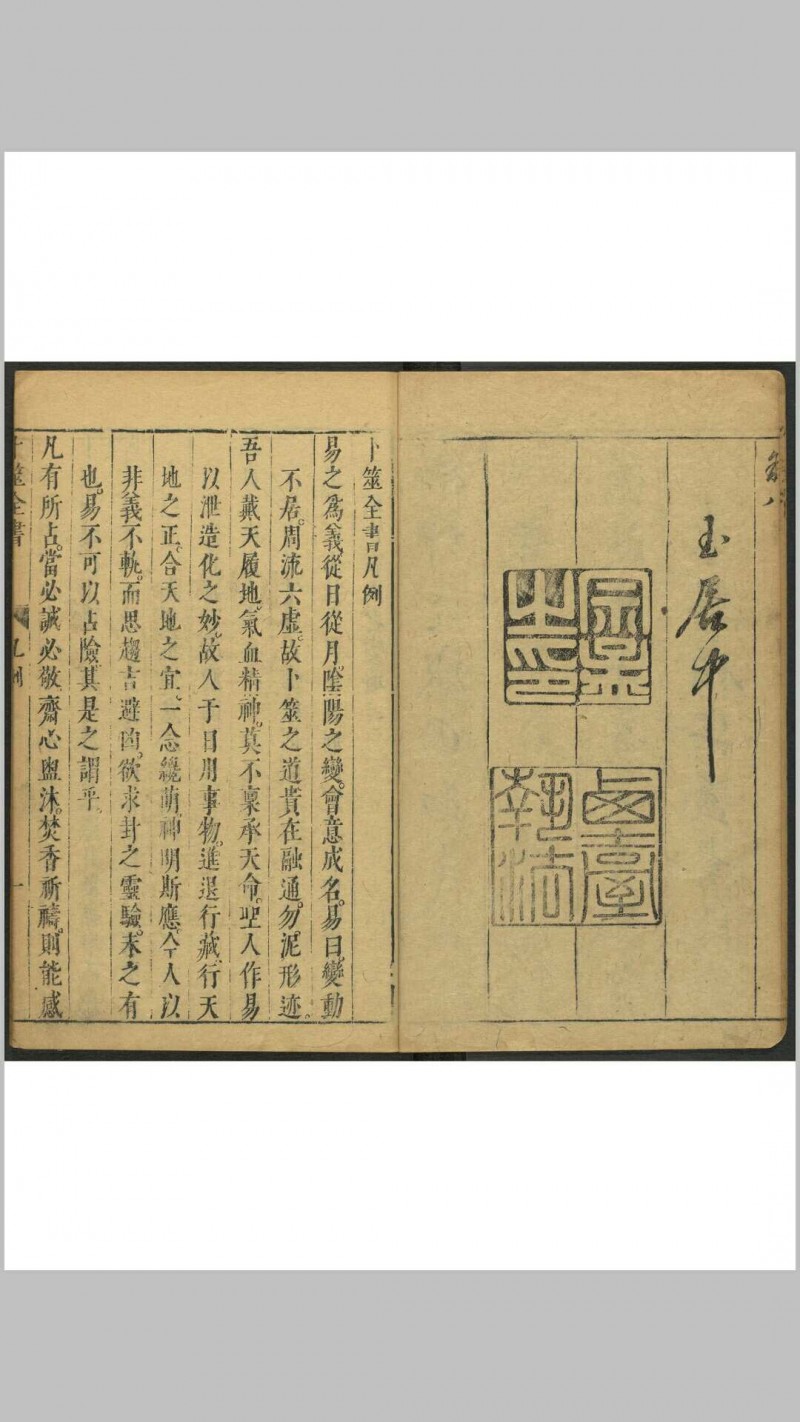 玉居中
卜筮全書凡例
易之爲義從日從月。陰陽之變。會意成名。易曰。變動
不居。周流六虛。故卜筮之道貴在融通。勿泥形迹。
吾人戴天履地。氣血精神。莫不稟承天命。聖人作易
以泄造化之妙。故人于日用事物。進退行藏、行天
地之正、合天地之宜、一念纔萌、神明斯應、今人以
非義不軌。而思趨吉避凶。欲求卦之靈驗。未之有
也。易不可以占險。其是之謂乎。
凡有所占。當必誠必敬。齋心盥沐。焚香祈禱。則能感
卜筮全書 凡例 一